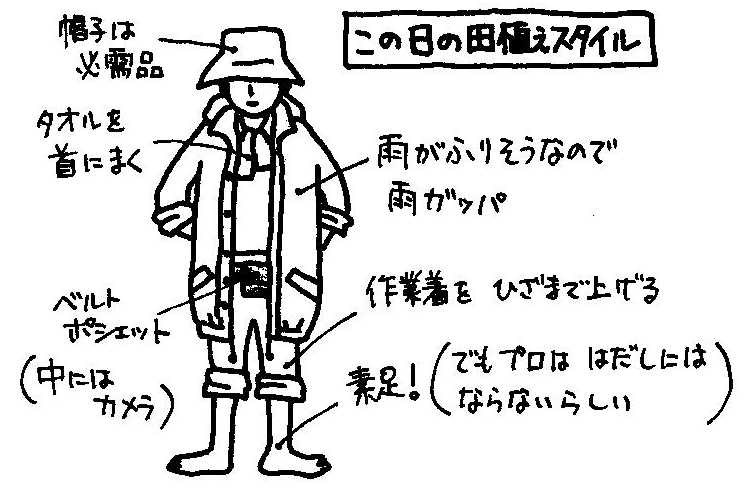 この日の田植えスタイル
帽子は
必需品
タオルを
首にまく
雨がふりそうなので
雨ガッパ
ベルト
ポシェット
(中には
カメラ)
作業着を ひざまで上げる
素足!
(でもプロは はだしには
ならないらしい)